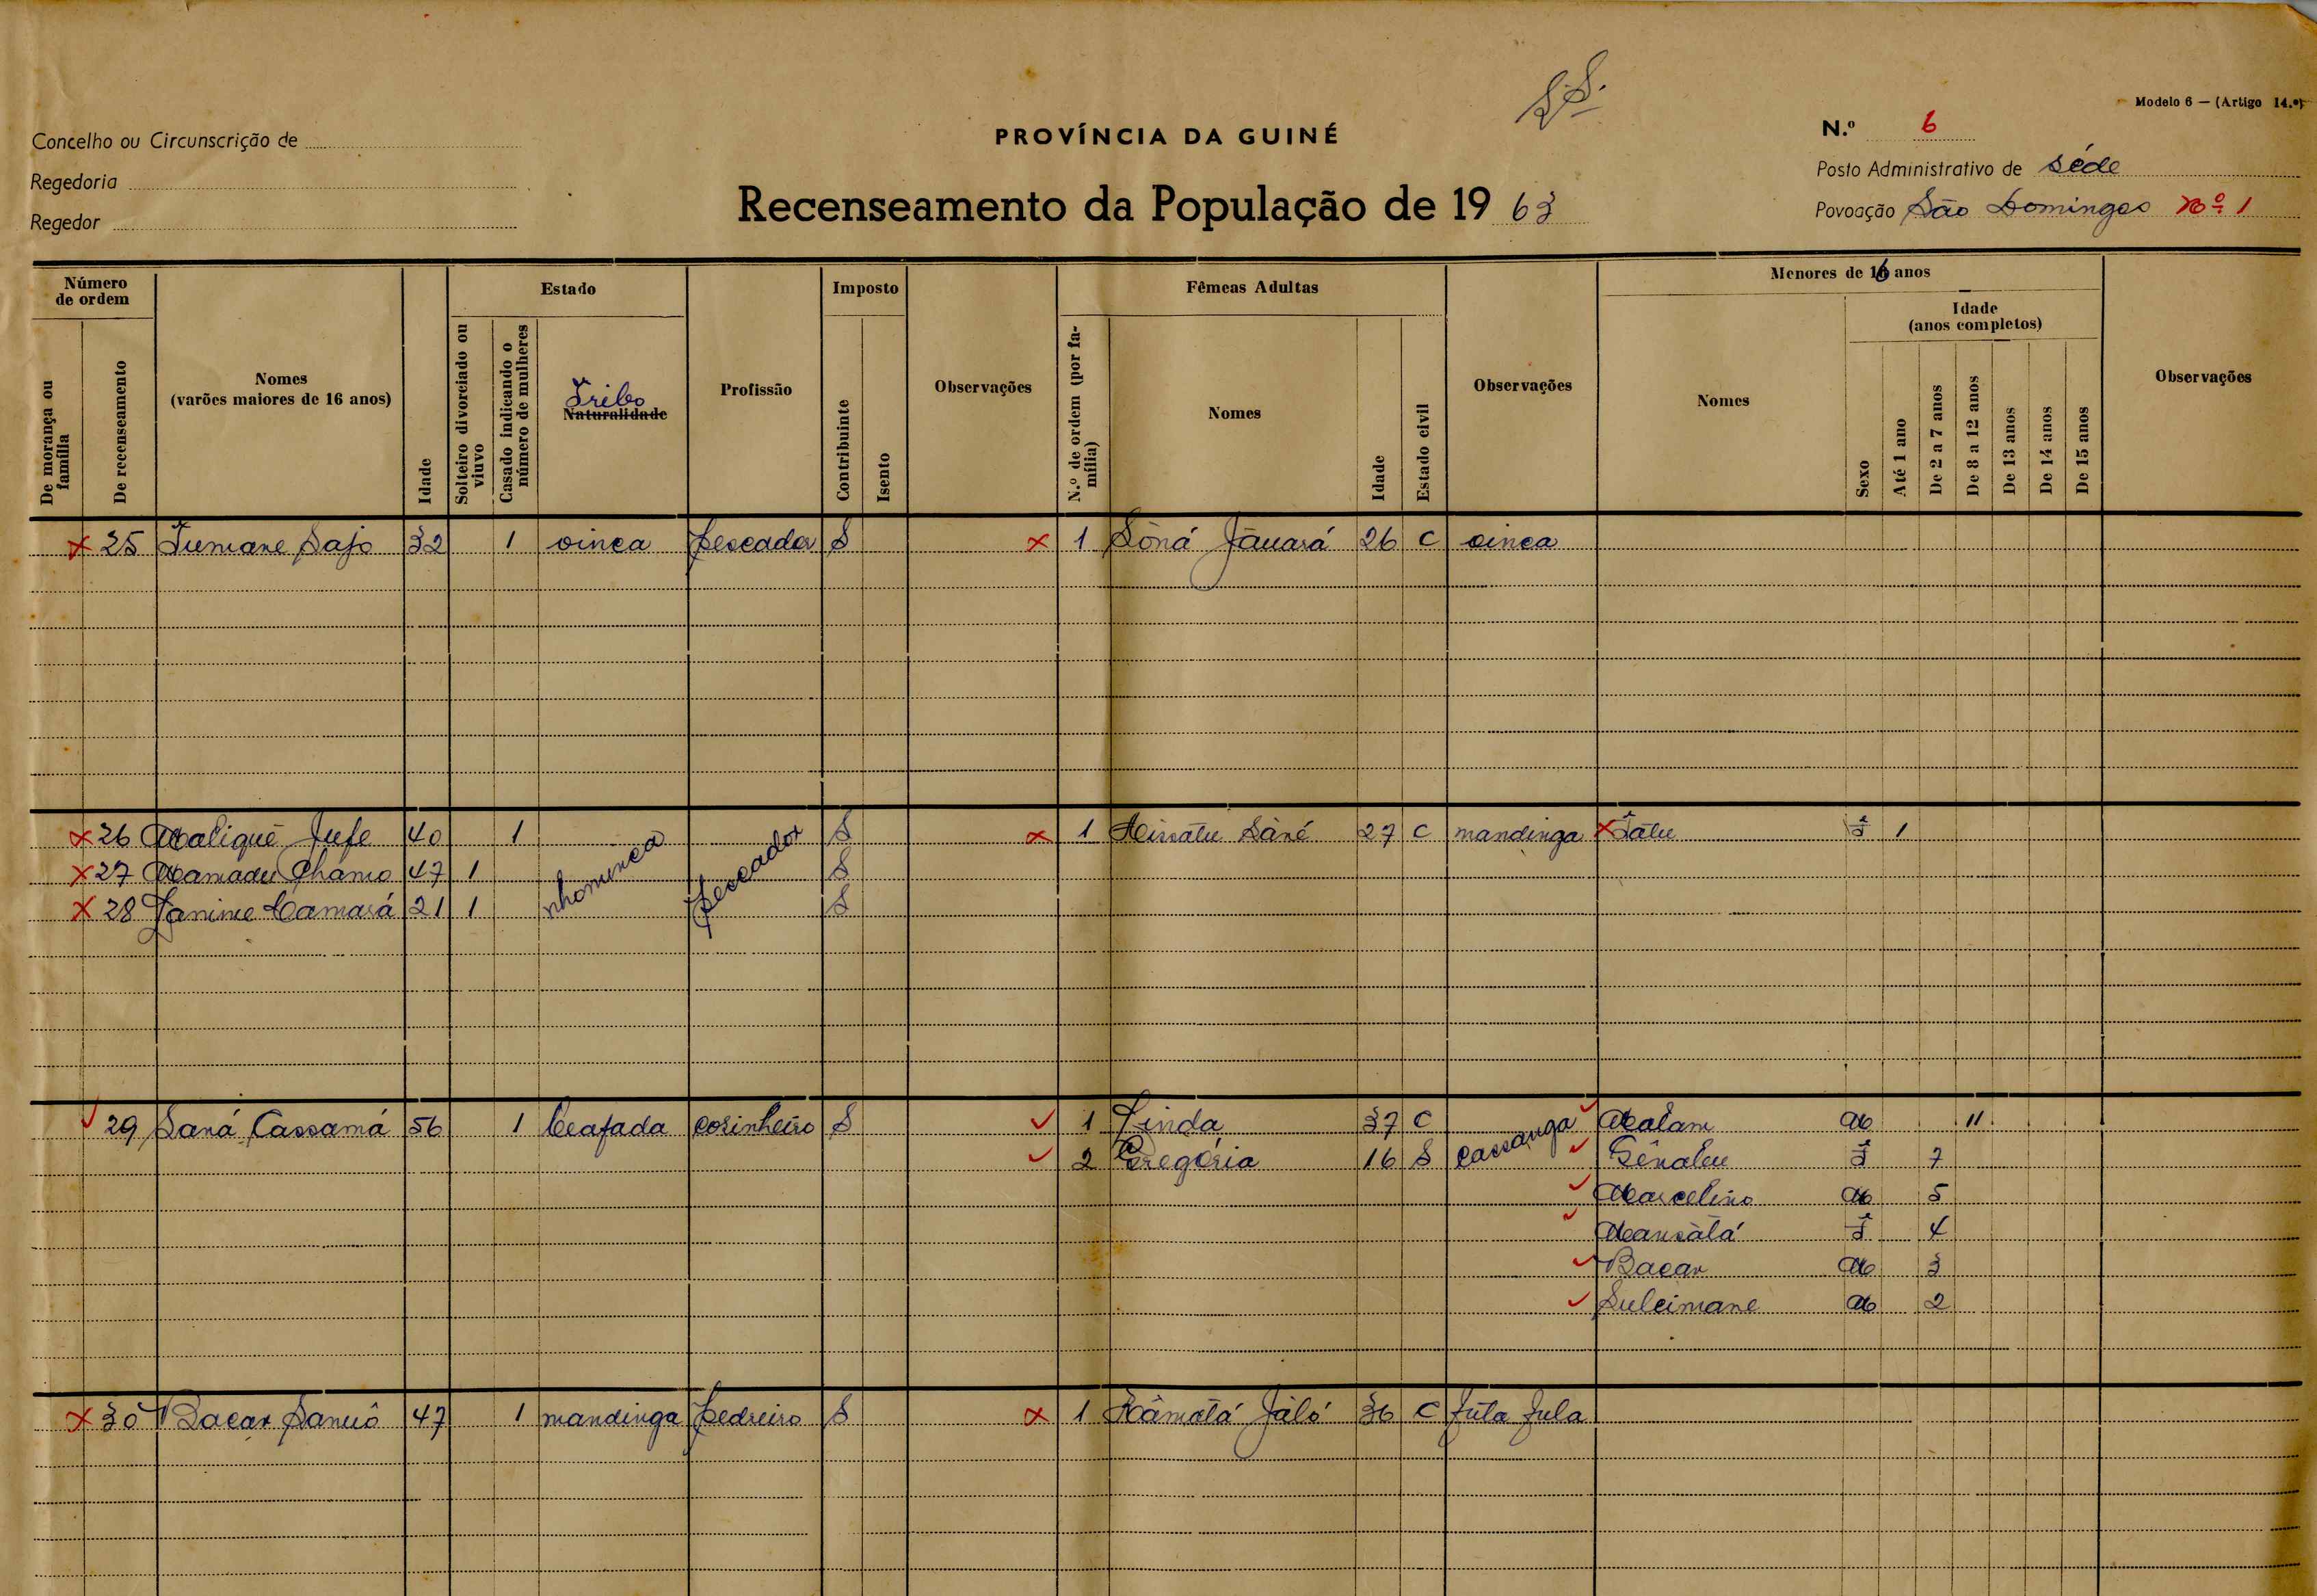 S.S.
Modelo 6 — (Artigo 14.º)
Concelho ou Circunscrição de
PROVÍNCIA DA GUINÉ
N.º 6
Regedoria
Posto Administrativo de séde
Regedor
Recenseamento da População de 19 63
Povoação São Domingos nº 1
Número de ordem
De morança ou família
De recenseamento
Nomes
(varões maiores de 16 anos)
Idade
Estado
Solteiro divorciado ou viuvo
Casado indicando o número de mulheres
Tribo
Naturalidade
Profissão
Imposto
Contribuinte
Isento
Observações
Fêmeas Adultas
N.º de ordem (por família)
Nomes
Idade
Estado civil
Observações
Menores de 16 anos
Nomes
Sexo
Idade
(anos completos)
Até 1 ano
De 2 a 7 anos
De 8 a 12 anos
De 13 anos
De 14 anos
De 15 anos
Observações
x 25 Tumane Sajo 32 1 oinca pescador S x 1 Sòná Jàuará 26 C oinca
x 26 Maliquê Jufe 40 1 nhominca pescador S x 1 Aissatu Sàné 27 C mandinga x Fàtu F 1
x 27 Mamadu Chamo 47 1 S
x 28 Janime Camará 21 1 S
✓ 29 Saná Cassamá 56 1 beafada cosinheiro S ✓ 1 Linda 37 C cassanga ✓ Malam M 11
✓ 2 Gregória 16 S ✓ Gênabu F 7
✓ Marcelino M 5
✓ Mansàtá F 4
✓ Bacar M 3
✓ Suleimane M 2
x 30 Bacar Sanuô 47 1 mandinga pedreiro S x 1 Ràmatá Jàló 36 C futa fula